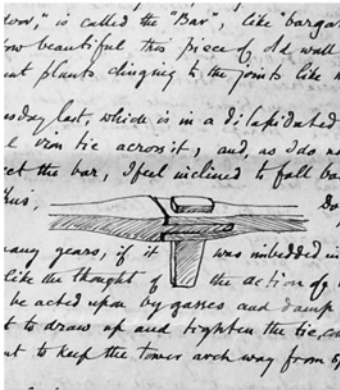 door," is called the "Bar", like "barga
ow beautiful this piece of old wall
ent plants clinging to the joints like
esday last, which is in a dilapidated
iron tie across it, and, as I do no
ect the bar, I feel inclined to fall ba
thus, Do
many years, if it was imbedded in
like the thought of the action of
be acted upon by gasses and damp
t to draw up and tighten the tie, an
nt to keep the tower arch way from sp